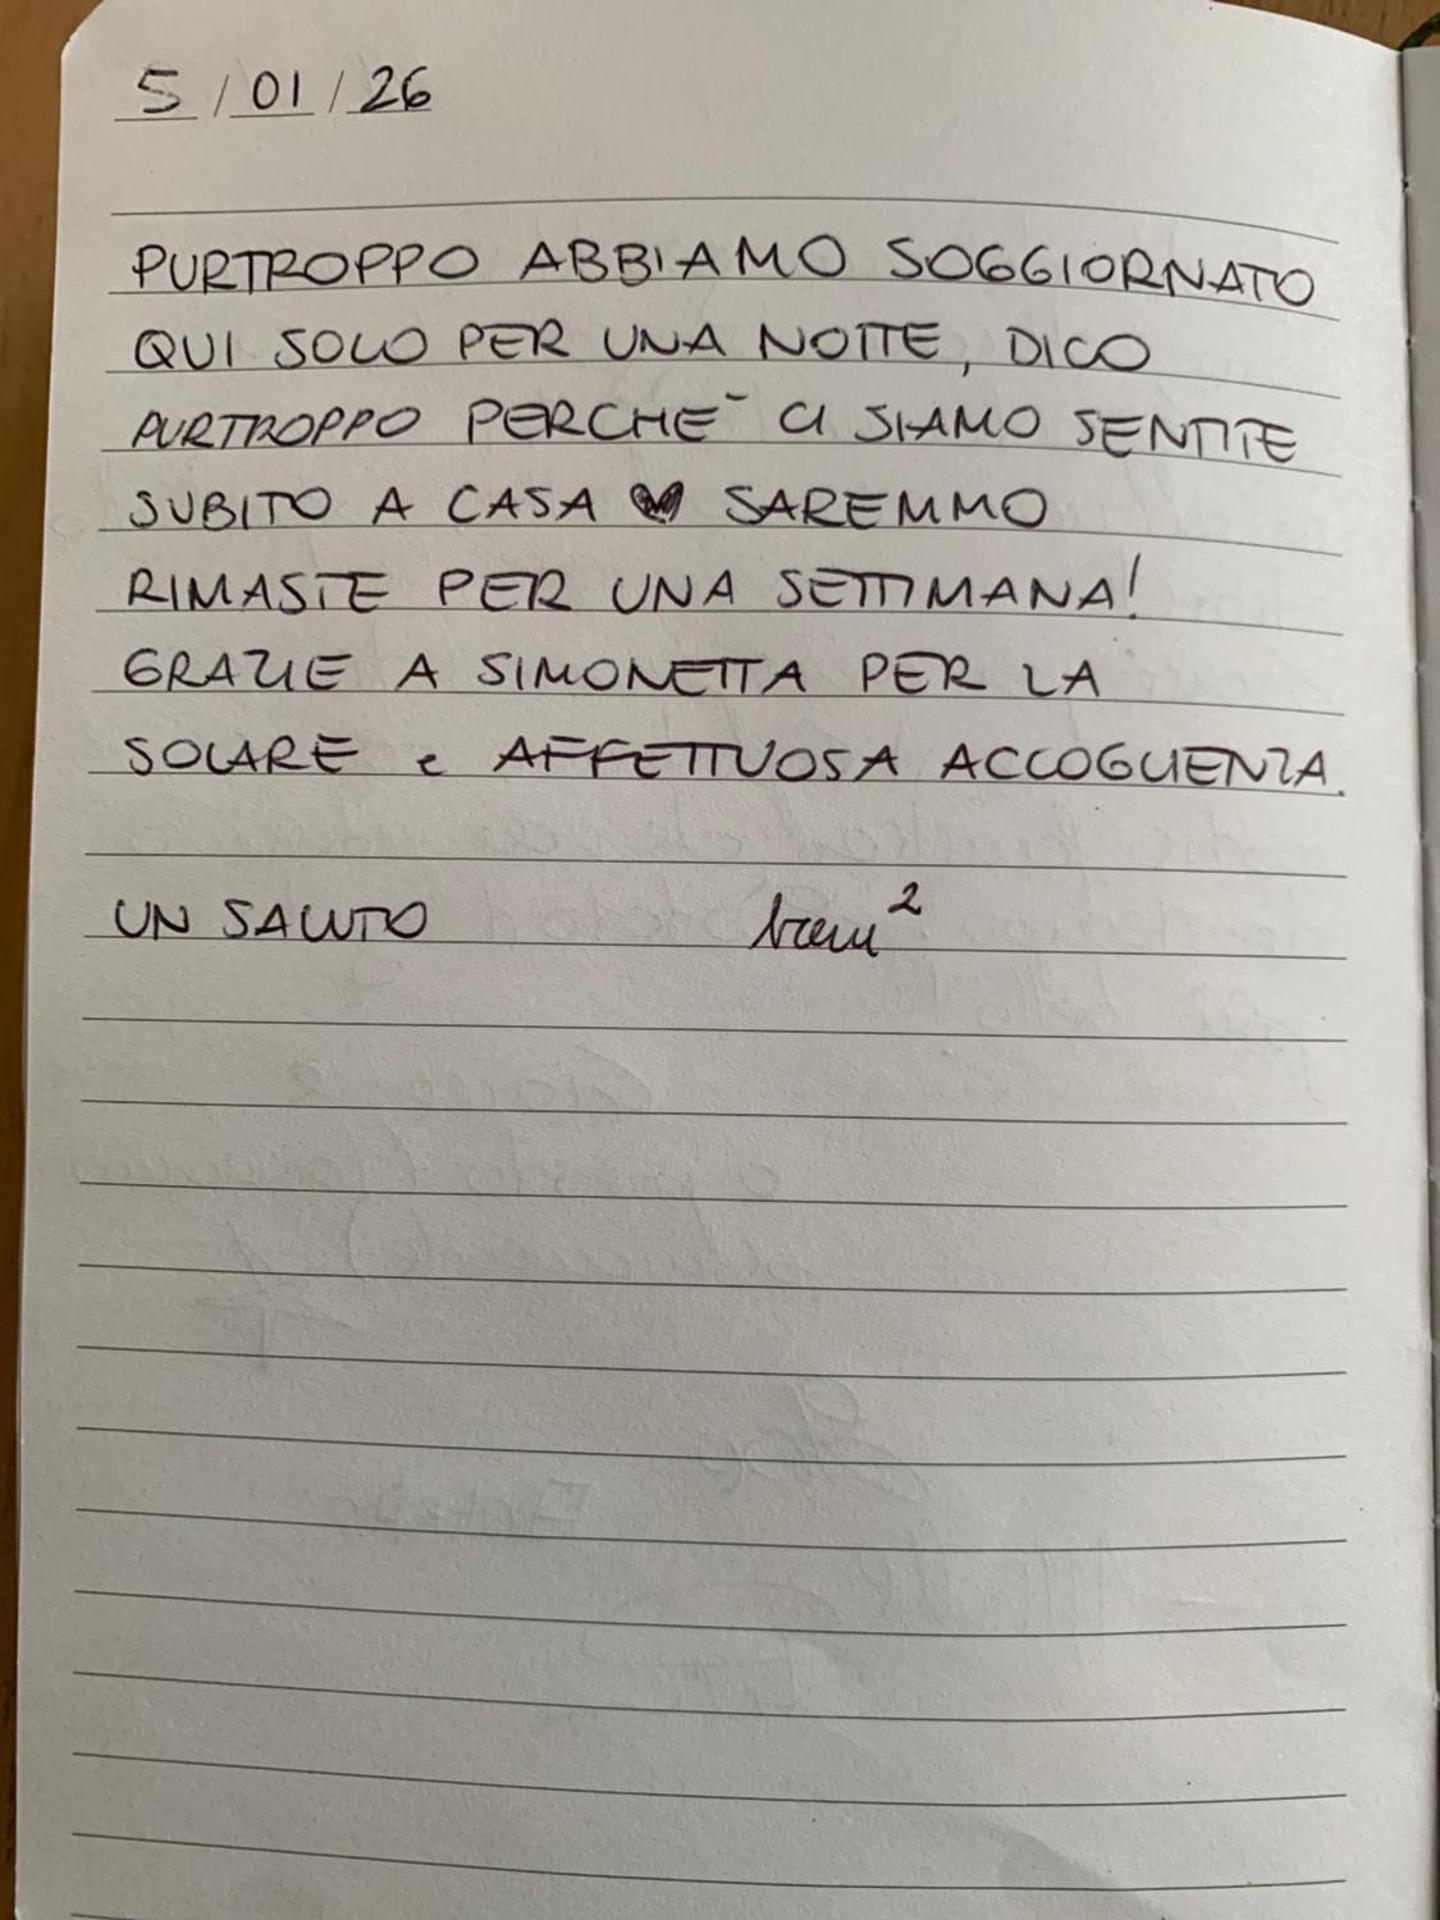 5/01/26
PURTROPPO ABBIAMO SOGGIORNATO
QUI SOLO PER UNA NOTTE, DICO
PURTROPPO PERCHÉ CI SIAMO SENTITE
SUBITO A CASA ♥ SAREMMO
RIMASTE PER UNA SETTIMANA!
GRAZIE A SIMONETTA PER LA
SOLARE e AFFETTUOSA ACCOGLIENZA.
UN SALUTO